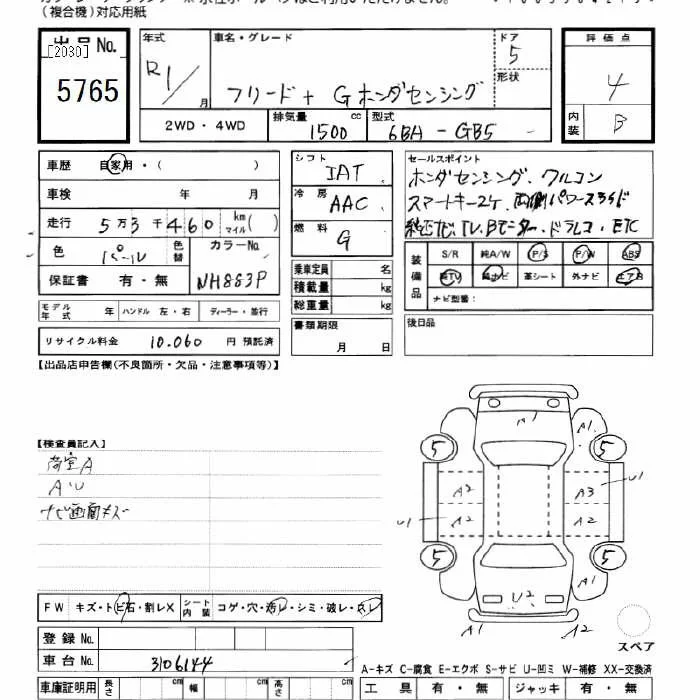 (複合機)対応用紙
出品No.
[2030]
5765
年式
R1/
月
車名・グレード
フリード+ Gホンダセンシング
ドア
5
形状
2WD・4WD
排気量
cc
1500
型式
6BA-GB5
評価点
4
内装
B
車歴 自家用・( )
車検 年 月
走行 5万3千460 km マイル ( )
色 パール 色替 カラーNo.
保証書 有・無 NH883P
モデル年式 年 ハンドル 左・右 ディーラー・並行
リサイクル料金 10.060 円 預託済
シフト IAT
冷房 AAC
燃料 G
乗車定員 名
積載量 kg
総重量 kg
書類期限
月 日
セールスポイント
ホンダセンシング、ワルコン
スマートキー2ケ、両側パワースライド
純正ナビ、TV、Bモニター、ドラレコ、ETC
装備品
S/R 純A/W P/S P/W ABS
純TV 純ナビ 革シート 外ナビ エアB
ナビ型番:
後日品
【出品店申告欄(不良箇所・欠品・注意事項等)】
【検査員記入】
荷室A
AU
ナビ画面キズ
A1
A1
5
5
A2
A3
U1
U1
A2
A2
5
5
A1
U2
A1
A2
スペア
FW キズ・トビ石・割レX シート内装 コゲ・穴・汚レ・シミ・破レ・スレ
登録No.
車台No. 3106144
車庫証明用 長さ cm 幅 cm 高さ cm
A-キズ C-腐食 E-エクボ S-サビ U-凹ミ W-補修 XX-交換済
工具 有・無 ジャッキ 有・無